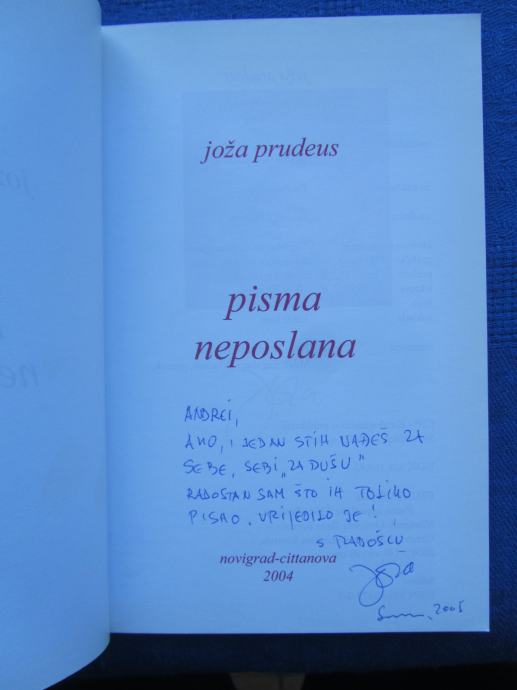 joža prudeus
pisma
neposlana
ANDREI,
AKO, I JEDAN STIH NAĐEŠ ZA
SEBE, SEBI „ZA DUŠU"
RADOSTAN SAM ŠTO IH TOLIKO
PISAO. VRIJEDILO JE!
S RADOŠĆU
novigrad-cittanova
2004
Joža
2005